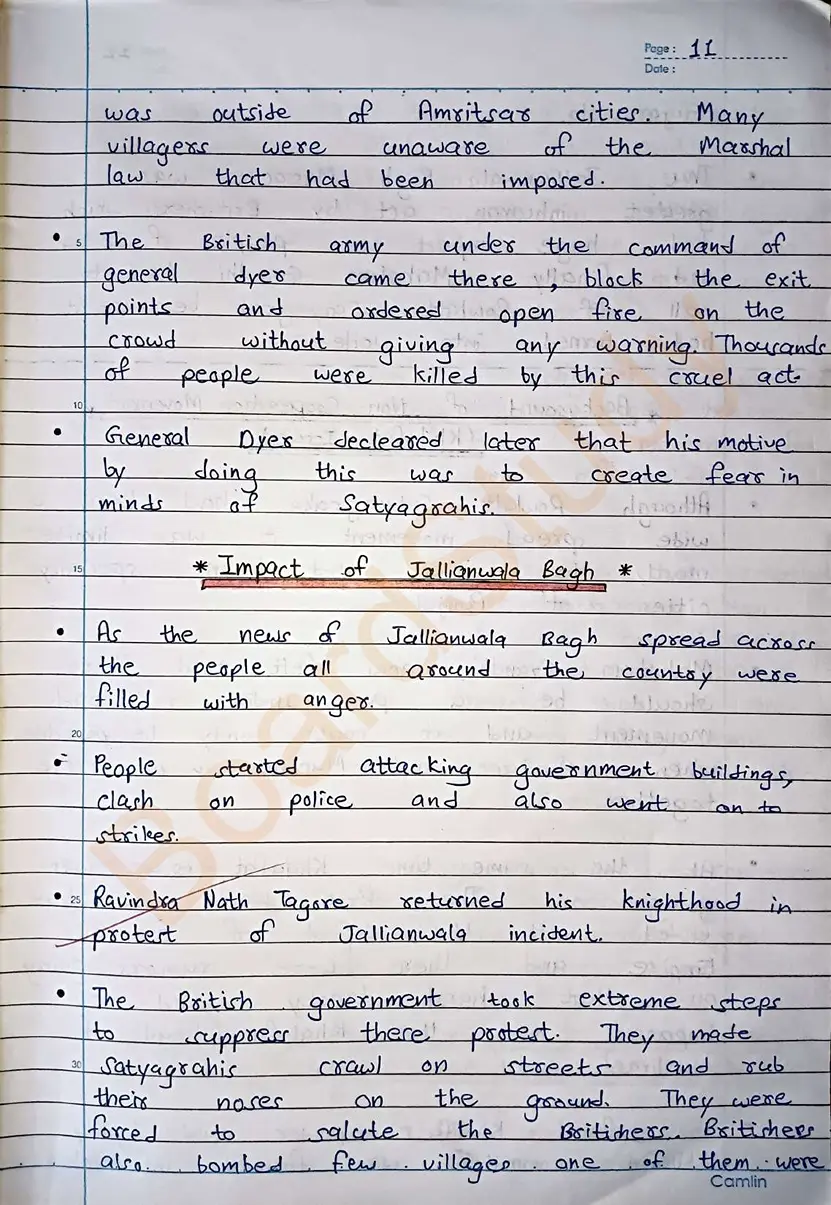 Page: 11
Date:
was outside of Amritsar cities. Many
villagers were unaware of the Marshal
law that had been imposed.
• 5 The British army under the command of
general dyer came there, block the exit
points and ordered open fire on the
crowd without giving any warning. Thousands
of people were killed by this cruel act.
10
• General Dyer decleared later that his motive
by doing this was to create fear in
minds of Satyagrahis.
15 * Impact of Jallianwala Bagh *
• As the news of Jallianwala Bagh spread across
the people all around the country were
filled with anger.
20
• People started attacking government buildings,
clash on police and also went on to
strikes.
• 25 Ravindra Nath Tagore returned his knighthood in
protest of Jallianwala incident.
• The British government took extreme steps
to suppress there protest. They made
30 Satyagrahis crawl on streets and rub
their noses on the ground. They were
forced to salute the Britichers. Britichers
also bombed few villages one of them were
Camlin
BoardStudy